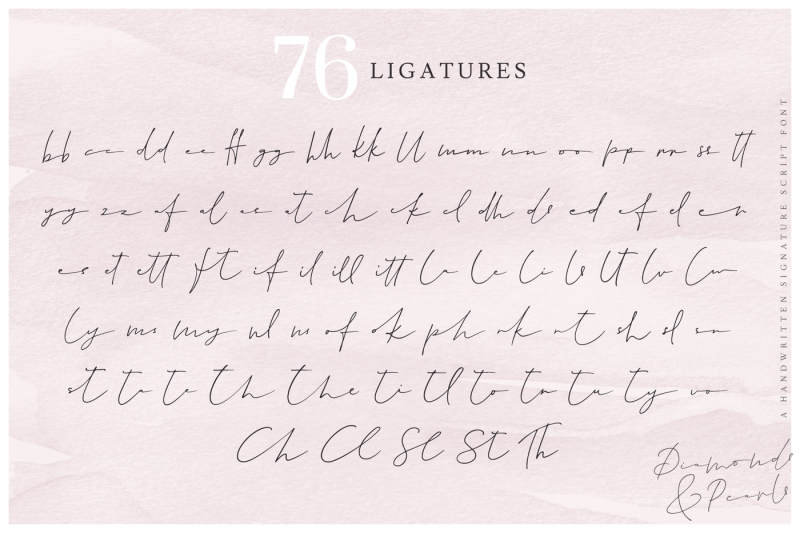 76 LIGATURES
bb cc dd ee ff gg hh kk ll mm nn oo pp rr ss tt
yy zz af al as at ch ck cl dh ds ed ef el en
es et ett ft if il ill itt la le li ls lt lv lw
ly ms my nl ns of ok ph rk rt sh sl sn
st ta te th the ti tl to tr tu ty vo
Ch Cl Sl St Th
A HANDWRITTEN SIGNATURE SCRIPT FONT
Diamonds
& Pearls